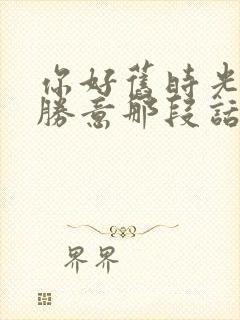 你好舊時光
勝意那段話
界界